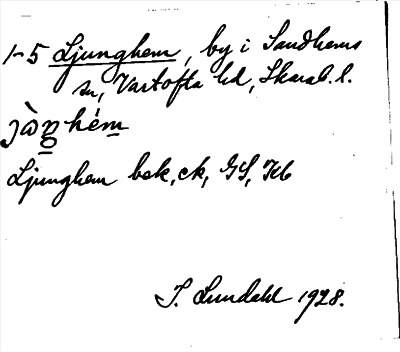 1-5 Ljunghem, by i Sandhems
sn, Vartofta hd, Skarab. l.
jàŋhém
Ljunghem bek, ek, GS, Kb
I. Lundahl 1928.